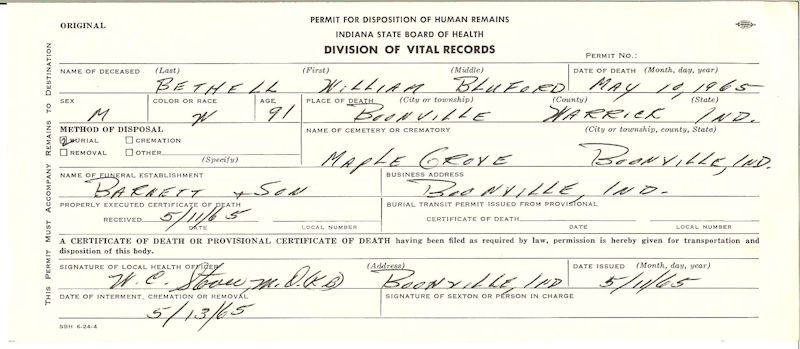 ORIGINAL
PERMIT FOR DISPOSITION OF HUMAN REMAINS
INDIANA STATE BOARD OF HEALTH
DIVISION OF VITAL RECORDS
PERMIT NO.:
THIS PERMIT MUST ACCOMPANY REMAINS TO DESTINATION
NAME OF DECEASED (Last) (First) (Middle) DATE OF DEATH (Month, day, year)
BETHELL WILLIAM BLUFORD MAY 10, 1965
SEX COLOR OR RACE AGE PLACE OF DEATH (City or township) (County) (State)
M W 91 BOONVILLE WARRICK IND.
METHOD OF DISPOSAL NAME OF CEMETERY OR CREMATORY (City or township, county, State)
BURIAL CREMATION
REMOVAL OTHER
(Specify)
MAPLE GROVE BOONVILLE, IND.
NAME OF FUNERAL ESTABLISHMENT BUSINESS ADDRESS
BARNETT & SON BOONVILLE, IND.
PROPERLY EXECUTED CERTIFICATE OF DEATH BURIAL TRANSIT PERMIT ISSUED FROM PROVISIONAL
RECEIVED 5/11/65 CERTIFICATE OF DEATH
DATE LOCAL NUMBER DATE LOCAL NUMBER
A CERTIFICATE OF DEATH OR PROVISIONAL CERTIFICATE OF DEATH having been filed as required by law, permission is hereby given for transportation and
disposition of this body.
SIGNATURE OF LOCAL HEALTH OFFICER (Address) DATE ISSUED (Month, day, year)
W. C. M.D. BOONVILLE, IND 5/11/65
DATE OF INTERMENT, CREMATION OR REMOVAL SIGNATURE OF SEXTON OR PERSON IN CHARGE
5/13/65
SBH 6-24-4